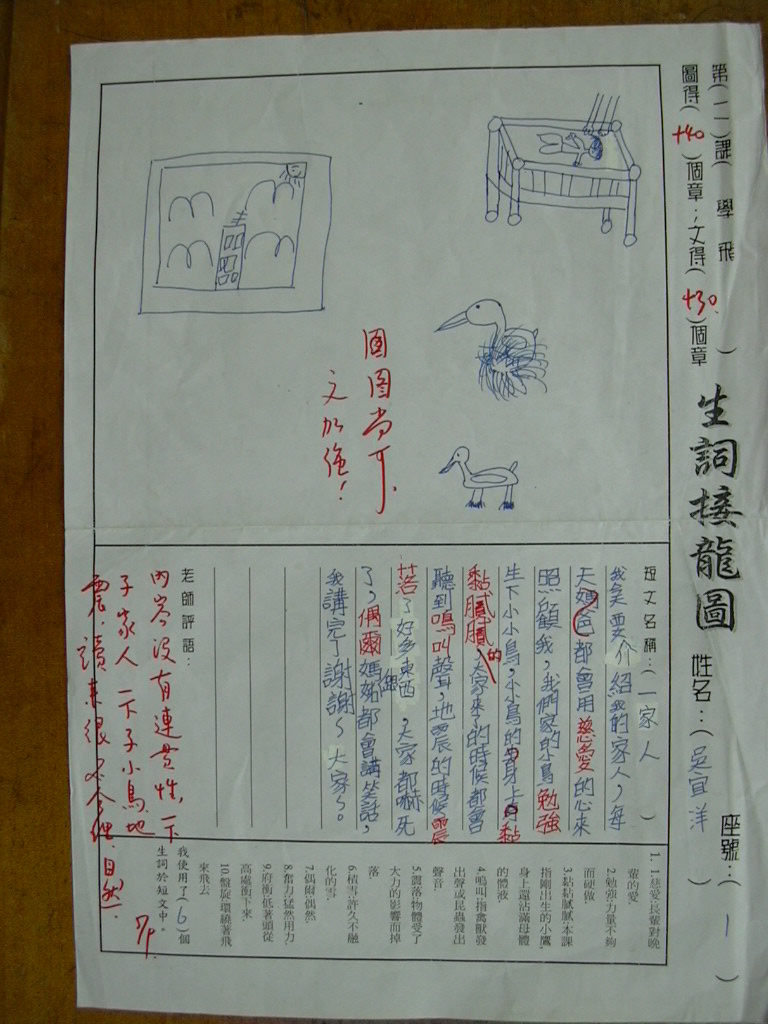 第(二)課( 學飛 )
圖得( +40 )個章；文得( +30 )個章
生詞接龍圖
姓名：( 吳宜洋 )
座號：( 1 )
圖圖尚可、
文加強！
短文名稱：( 一家人 )
我是要介紹我的家人，每
天媽爸都會用慈愛的心來
照顧我，我們家的小鳥勉強
生下小小鳥，小小鳥的身上黏
黏膩膩的，大家來了的時候都會
聽到鳴叫聲，地震的時候震
落了好多東西，大家都嚇死
了，偶爾媽媽都會講笑話，
我講完了謝謝～大家～。
老師評語：
內容沒有連貫性，一下
子家人一下子小鳥地
震，讀來很不合他自然。
1. 1.慈愛:長輩對晚
輩的愛.
2.勉強:力量不夠
而硬做.
3.黏黏膩膩:本課
指剛出生的小鷹,
身上還沾滿母體
的體液.
4.鳴叫:指禽獸發
出聲或昆蟲發出
聲音.
5.震落:物體受了
大力的影響而掉
落
6.積雪:許久不融
化的雪.
7.偶爾:偶然.
8.奮力:猛然用力.
9.俯衝:低著頭從
高處衝下來.
10.盤旋:環繞著飛
來飛去
我使用了( 6 )個
生詞於短文中。